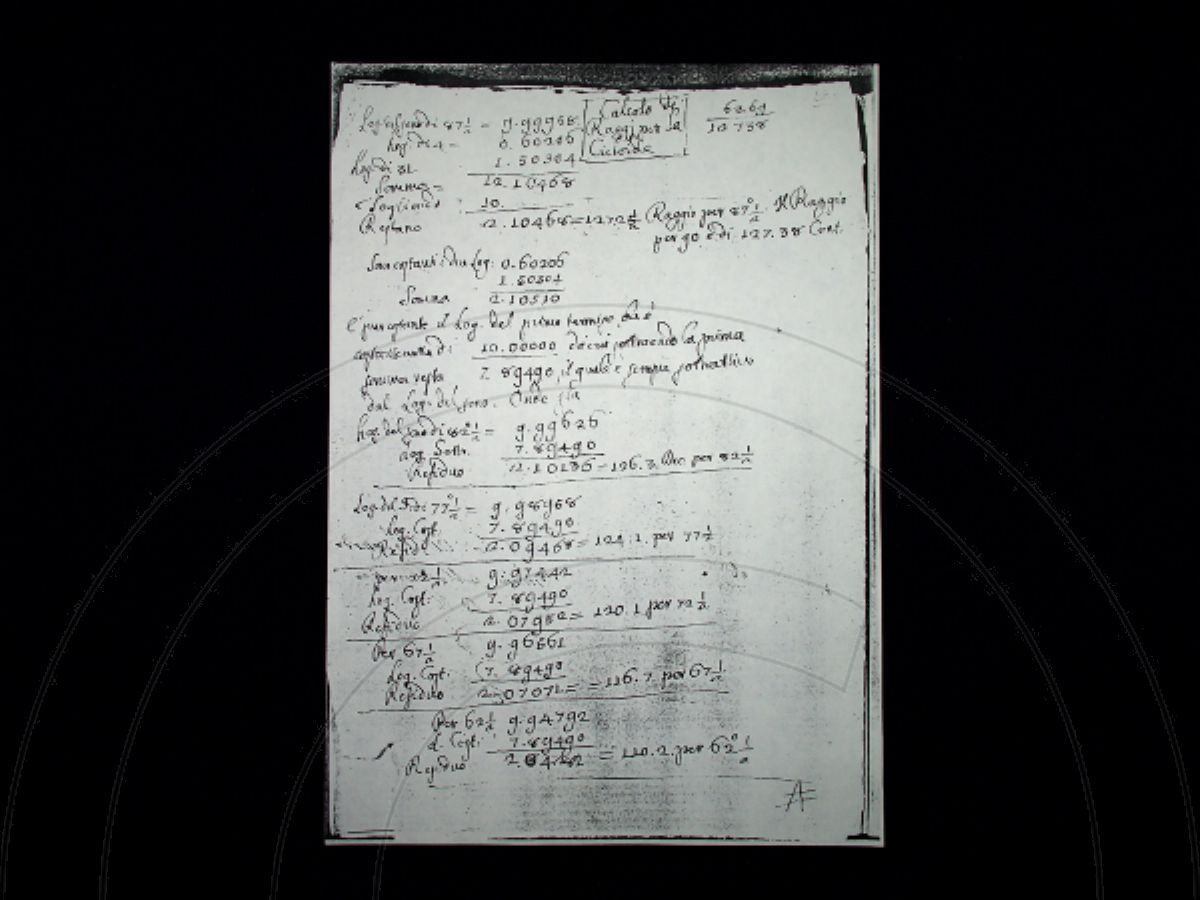 Log. del seno di 87 1/2 = 9.99958
Log. di 4 = 0.60206
Log. di 1.50304
Somma = 12.10468
10.
Restano 2.10468=127 2 1/2 Raggio per 87° 1/2. Il Raggio
per 90 è di 127.38 Cent.
Calcolo de
Raggi per la
Cicloide
6269
12738
Log: 0.60206
1.50304
Somma 2.10510
e pur costante il Log. del primo termine, che è
10.00000 da cui sottraendo la prima
somma resta 7.89490, il quale è sempre sottrattivo
dal Log. del seno. Onde sia
Log. del seno di 82° 1/2 = 9.99626
Log. Sottr. 7.89490
Residuo 2.10136 = 126.3. per 82 1/2
Log. del S. di 77° 1/2 = 9.98958
Log. Cost. 7.89490
Resid. 2.09468 = 124.1. per 77 1/2
per 72 1/2. 9.97442
Log. Cost: 7.89490
Residuo 2.07952 = 120.1 per 72 1/2
Per 67 1/2 9.96561
Log. Cost. 7.89490
Residuo 2.07071 = = 116.7. per 67 1/2
Per 62 1/2 9.94792
L. Cost: 7.89490
Residuo = 110.2. per 62° 1/2